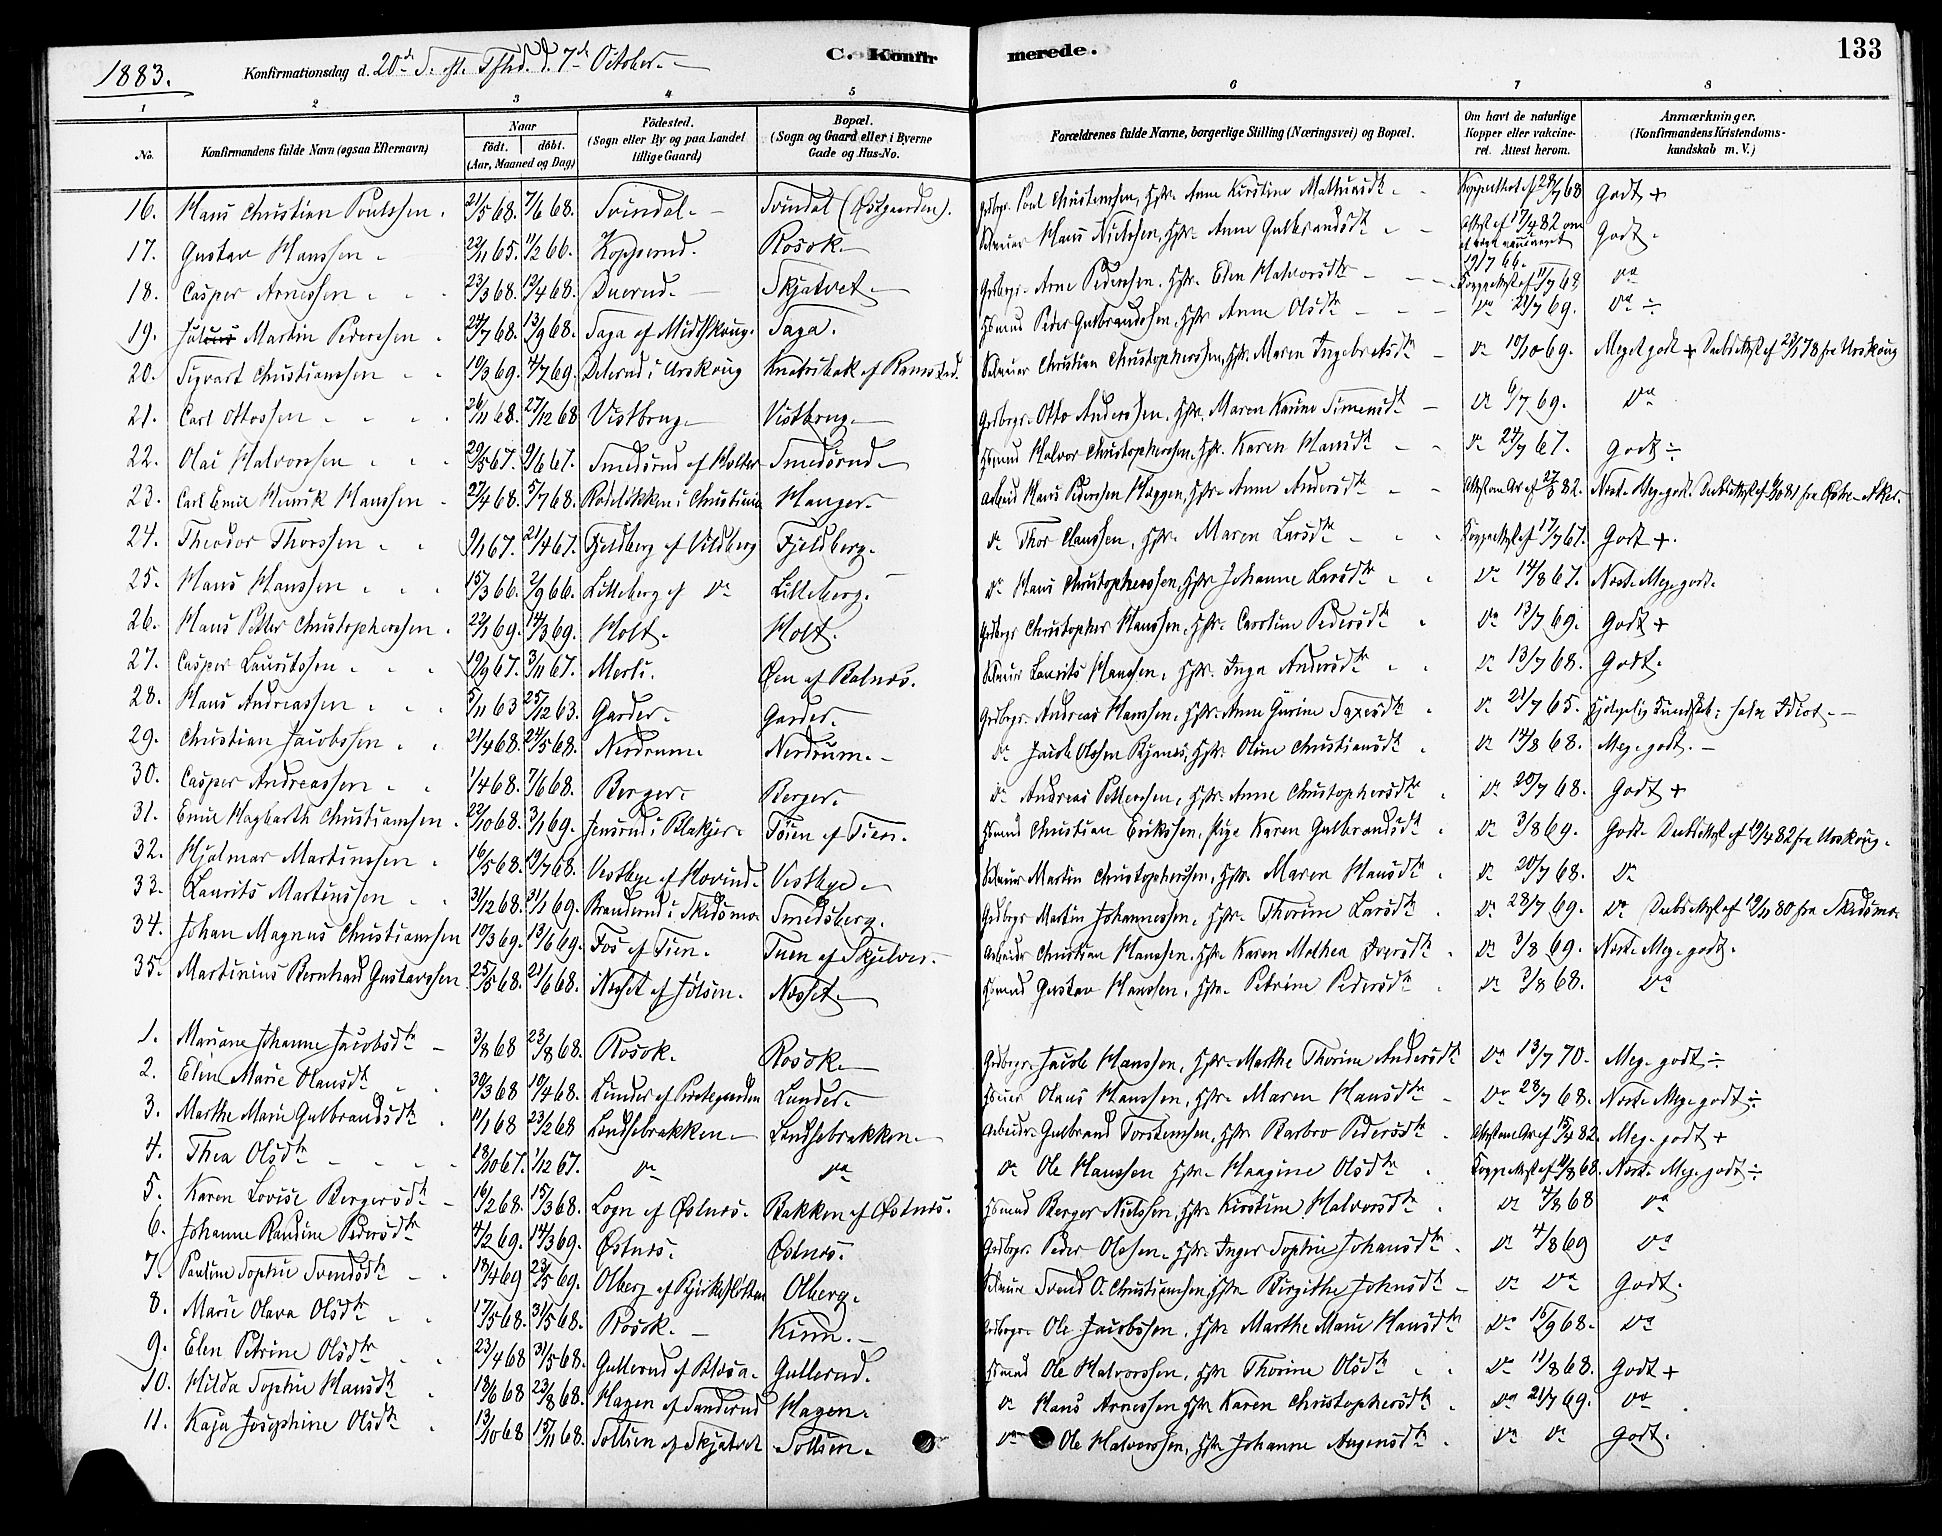 1883. Konfirmationsdag d. 20de S. eft. Tfhd. d. 7de October. C. Konfirmerede. 133
1 2 3 4 5 6 7 8
No. Konfirmandens fulde Navn (ogsaa Efternavn) Naar født. døbt. (Aar, Maaned og Dag) Fødested. (Sogn eller By og paa Landet tillige Gaard) Bopæl. (Sogn og Gaard eller i Byerne Gade og Hus-No. Forældrenes fulde Navne, borgerlige Stilling (Næringsvei) og Bopæl. Om havt de naturlige Kopper eller vakcineret. Attest herom. Anmærkninger, (Konfirmandens Kristendomskundskab m. V.)
16. Hans Christian Poulssen. 21/5 68. 7/6 68. Svindal. Svindal (Østgaarden). Grdbrgr. Poul Christensen, Hstr. Anne Kirstine Mathiasdtr Godt +
17. Gustav Hanssen 22/11 65. 11/2 66. Kopperud. Rosok. Hans Nielssen, Hstr. Anne Gulbrandsdtr Attest af 17/4 82 om at være vaccineret 19/7 66. Godt.
18. Casper Arnessen 23/3 68. 12/4 68. Duerud. Skjatvet. Grdbrgr. Arne Pedersen. Hstr. Elen Halvorsdtr Koppeattest af 11/7 68, do
19. Martin Pedersen 24/7 68. 13/9 68. Saga af Midtskoug. Saga. Hsmnd Peder Gulbrandssen, Hstr. Anne Olsdtr do 21/7 69. do ÷
20. Sigvart Christianssen 19/3 69. 4/7 69. Deterud i Urskoug Knatribak af Ramstad. Christian Christophersen, Hstr. Maren Ingebretsdtr do 10/10 69. Meget godt + Daabsattest af 22/1 78 fra Urskoug
21. Carl Ottossen 26/11 68. 27/12 68 Vestbrug. Vestbrug. Grdbrgr. Otto Anderssen. Hstr. Maren Karine Simensdtr do 6/7 69. do
22. Olai Halvorsen 29/5 67. 9/6 67. Smedsrud af Holter Smedsrud. Hsmnd Halvor Christophersen. Hstr. Karen Hansdtr do 24/7 67. Godt ÷
23. Carl Emil Henrik Hanssen 27/4 68. 5/7 68. Rodeløkken i Christiania Hanger. Arbeid Hans Pederssen Haggen, Hstr. Anne Andersdtr Næst. Meg. godt.
24. Theodor Thorssen 9/1 67. 21/4 67. Fjeldberg af Vildberg Fjeldberg. do Thor Hanssen, Hstr. Maren Larsdtr Koppeattest af 17/7 67. Godt +.
25. Hans Hanssen 15/3 66. 2/9 66. Lilleberg af do Lilleberg. do Hans Christopherssen, Hstr. Johanne Larsdtr do 14/8 67. Næst. Meg. godt.
26. Hans Petter Christopherssen. 22/1 69. 14/3 69. Holt. Holt. Grdbrgr Christopher Hanssen, Hstr. Caroline Pedersdtr do 13/7 69. Godt +
27. Casper Lauritssen 19/9 67. 3/11 67. Merli. Øen af Balnæs. Laurits Hanssen. Hstr. Inga Andersdtr do 13/7 68. Godt.
28. Hans Andreassen 5/11 63 25/12 63. Garder. Garder. Grdbrgr. Andreas Hanssen. Hstr. Anne Gurine Saxesdtr do 21/7 65. halv Idiot.
29. Christian Jacobssen 21/4 68. 24/5 68. Nordrum. Nordrum. do Jacob Olssen Bjønes, Hstr. Oline Christiansdtr do 14/8 68. Meg. godt.
30. Casper Andreassen 1/4 68. 7/6 68. Berger. Berger. do Andreas Pettersen, Hstr. Anne Christophersdtr do 20/7 68. Godt +
31. Emil Hagbarth Christianssen. 22/10 68. 3/1 69. Jensrud i Blakjer. Toien af Tien. Hsmnd Christian Erikssen, Pige Karen Gulbrandsdtr do 3/8 69. Godt Daabsattest af 19/4 82 fra Urskoug.
32. Hjalmar Martinssen. 16/5 68. 19/7 68. Vestbye af Hovind. Vestbye. Martin Christophersen, Hstr. Maren Hansdtr do 20/7 68. do
33. Laurits Martinssen 31/12 68. 31/1 69. Branderud i Skedsmo. Smedsberg. Grdbrgr Martin Johannessen, Hstr. Thorine Larsdtr do 28/7 69. do Daabsattest af 19/11 80 fra Skedsmo.
34. Johan Magnus Christianssen 19/3 69. 13/6 69. Fos af Tien. Tuen af Skjelver. Arbeidr Christian Hanssen. Hstr Karen Mathea Iversdtr do 3/8 69. Næst. Meg. godt.
35. Martinius Bernhard Gustavssen 25/5 68. 21/6 68. Næsset af Jølsen. Næsset. Hsmnd Gustav Hanssen, Hstr. Petrine Pedersdtr do 3/8 68. do
1. Mariane Johanne Jacobsdtr 3/8 68 23/8 68. Rosok. Rosok. Grdbrgr. Jacob Hanssen, Hstr. Marthe Thorine Andersdtr do 13/7 70. Meg. godt ÷
2. Elin Marie Olausdtr 30/3 68 19/4 68. Lunder af Prestegaarden Lunder. Olaus Hanssen, Hstr. Maren Hansdtr do 28/7 68. Næst. Meg. godt ÷
3. Marthe Marie Gulbrandsdtr 11/1 68 23/2 68 Londsebrakken. Londsebrakken. Arbeidr. Gulbrand Torstenssen, Hstr. Barbro Pedersdtr 15/4 82. Meg. godt +
4. Thea Olsdtr 18/10 67. 1/12 67. do do do Ole Hanssen Hstr. Haagine Olsdtr Koppeattest af 11/8 68. Næst. Meg. godt ÷
5. Karen Lovise Bergersdtr 16/2 68. 15/3 68. Logn af Østnes. Bakken af Østnes. Hsmnd Berger Nielssen, Hstr. Kirstine Halvorsdtr do 4/8 68 do
6. Johanne Randine Pedersdtr 4/2 69. 14/3 69. Østnes. Østnes. Grdbrgr. Peder Olssen. Hstr. Inger Sophie Johansdtr do 4/8 69 do
7. Pauline Sophie Svendsdtr 18/4 69 23/5 69. Olberg af Bjirkefløtten Olberg. Svend O. Christianssen, Hstr. Birgithe Johnsdtr do do Godt.
8. Marie Olava Olsdtr 17/5 68. 31/5 68. Rosok. Kinn. Grdbrgr. Ole Jacobssen, Hstr Marthe Marie Hansdtr do 16/9 68. do
9. Elen Petrine Olsdtr 23/4 68 31/5 68. Gullerud af Blæsa. Gullerud. Hsmnd Ole Halvorssen, Hstr Thorine Olsdtr do 11/8 68. Godt +
10. Hilda Sophie Hansdtr 18/6 68 23/8 68. Hagen af Sanderud Hagen. do Hans Arnessen Hstr. Karen Christophersdtr do 21/7 69. do
11. Kaja Josephine Olsdtr 13/10 68 15/11 68. Sollien af Skjatvet Sollien. do Ole Halvorssen, Hstr Johanne Augensdtr do do Godt.